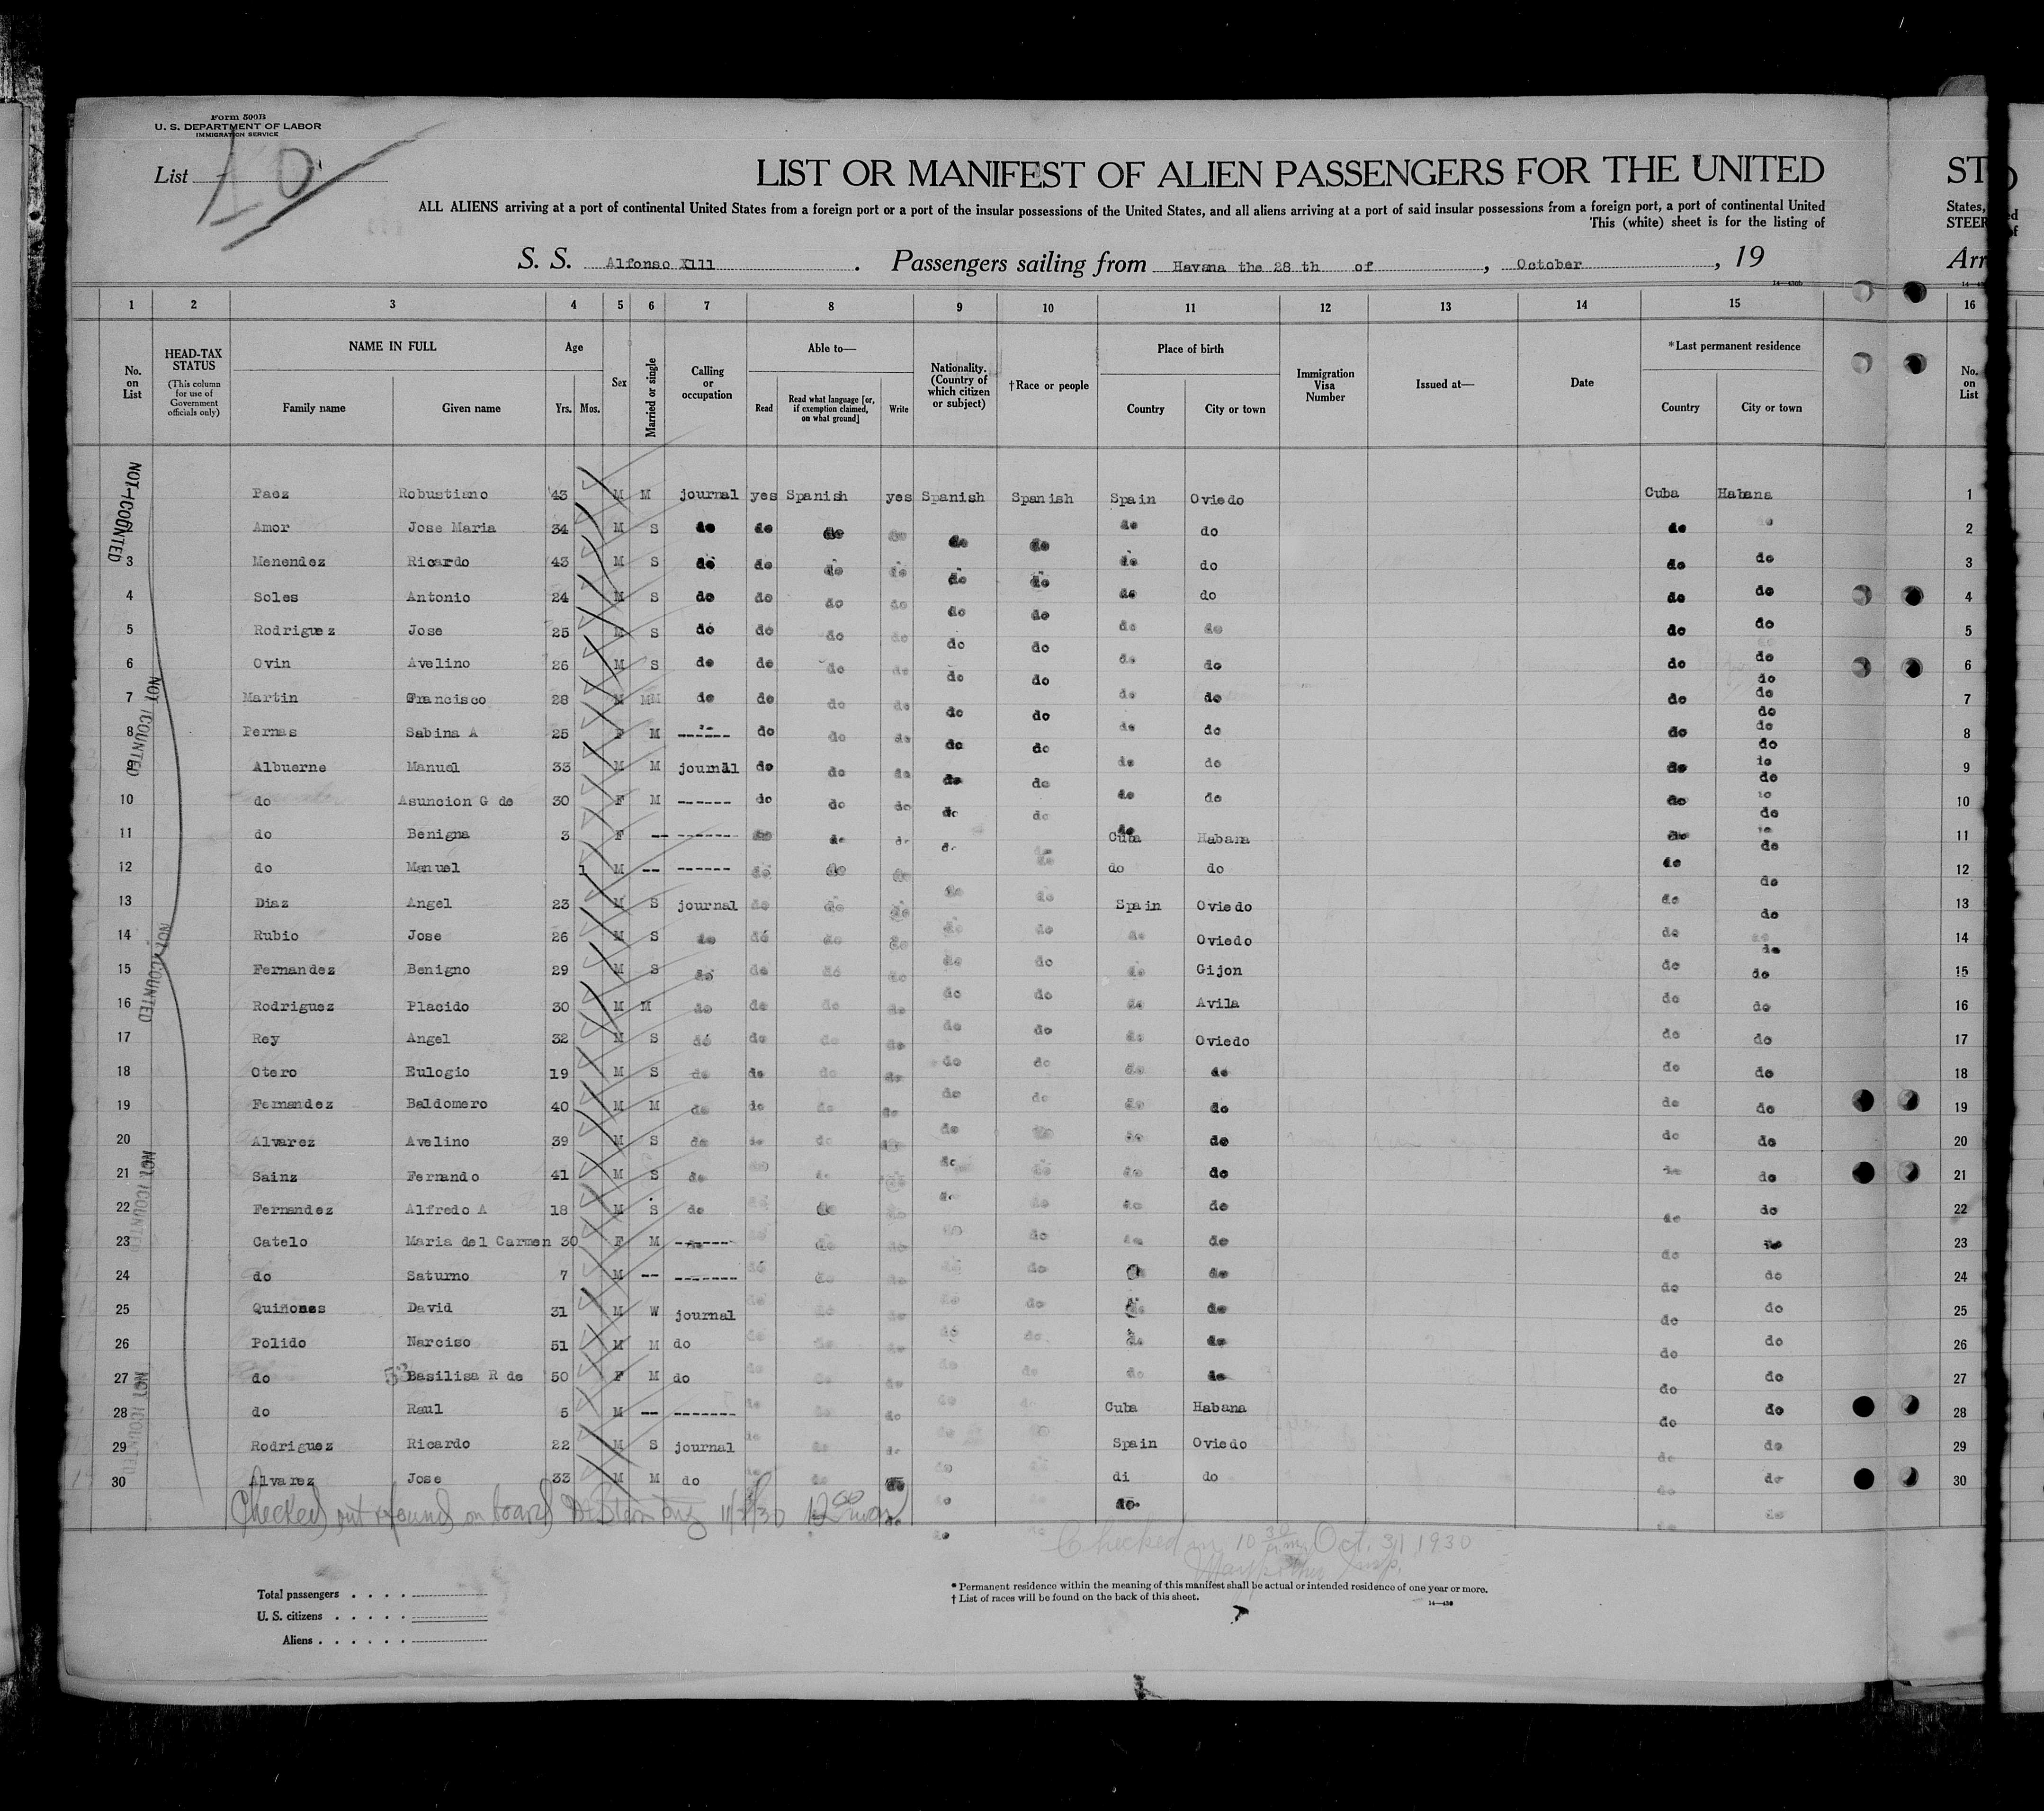 Form 500B
U. S. DEPARTMENT OF LABOR
IMMIGRATION SERVICE
List 10
LIST OR MANIFEST OF ALIEN PASSENGERS FOR THE UNITED
ALL ALIENS arriving at a port of continental United States from a foreign port or a port of the insular possessions of the United States, and all aliens arriving at a port of said insular possessions from a foreign port, a port of continental United
This (white) sheet is for the listing of
S. S. Alfonso X111 . Passengers sailing from Havana the 28 th of , October , 19
ST
States,
STEER
Arr
1 2 3 4 5 6 7 8 9 10 11 12 13 14 15 16
No. on List
HEAD-TAX STATUS (This column for use of Government officials only)
NAME IN FULL Family name Given name
Age Yrs. Mos.
Sex
Married or single
Calling or occupation
Able to— Read Read what language [or, if exemption claimed, on what ground] Write
Nationality. (Country of which citizen or subject)
†Race or people
Place of birth Country City or town
Immigration Visa Number
Issued at—
Date
*Last permanent residence Country City or town
No. on List
NOT COUNTED
1 Paez Robustiano 43 M M journal yes Spanish yes Spanish Spanish Spain Oviedo Cuba Habana 1
2 Amor Jose Maria 34 M S do do do do do do do do do do 2
3 Menendez Ricardo 43 M S do do do do do do do do do do 3
4 Soles Antonio 24 M S do do do do do do do do do do 4
5 Rodriguez Jose 25 M S do do do do do do do do do do 5
6 Ovin Avelino 26 M S do do do do do do do do do do 6
7 Martin Francisco 28 M M do do do do do do do do do do 7
8 Pernas Sabina A 25 F M ------ do do do do do do do do do 8
9 Albuerne Manuel 33 M M journal do do do do do do do do do 9
10 do Asuncion G de 30 F M ------ do do do do do do do do do 10
11 do Benigna 3 F -- ------- do do do do do Cuba Habana do do 11
12 do Manuel 1 M -- ------ do do do do do do do do do 12
13 Diaz Angel 23 M S journal do do do do do Spain Oviedo do do 13
14 Rubio Jose 26 M S do do do do do do do Oviedo do do 14
15 Fernandez Benigno 29 M S do do do do do do do Gijon do do 15
16 Rodriguez Placido 30 M M do do do do do do do Avila do do 16
17 Rey Angel 32 M S do do do do do do do Oviedo do do 17
18 Otero Eulogio 19 M S do do do do do do do do do do 18
19 Fernandez Baldomero 40 M M do do do do do do do do do do 19
20 Alvarez Avelino 39 M S do do do do do do do do do do 20
21 Sainz Fernando 41 M S do do do do do do do do do do 21
22 Fernandez Alfredo A 18 M S do do do do do do do do do do 22
23 Catelo Maria del Carmen 30 F M ------ do do do do do do do do do 23
24 do Saturno 7 M -- ------- do do do do do do do do 24
25 Quiñones David 31 M W journal do do do do do do do do do 25
26 Polido Narciso 51 M M do do do do do do do do do do 26
27 do Basilisa R de 50 F M do do do do do do do do do do 27
28 do Raul 5 M -- ------- do do do do do Cuba Habana do do 28
29 Rodriguez Ricardo 22 M S journal do do do do do Spain Oviedo do do 29
30 Alvarez Jose 33 M M do do do do do do di do do do 30
Checked out & found on board
Checked in 10 30 Oct. 31 1930
Insp.
Total passengers . . . .
U. S. citizens . . . . .
Aliens . . . . . .
* Permanent residence within the meaning of this manifest shall be actual or intended residence of one year or more.
† List of races will be found on the back of this sheet.